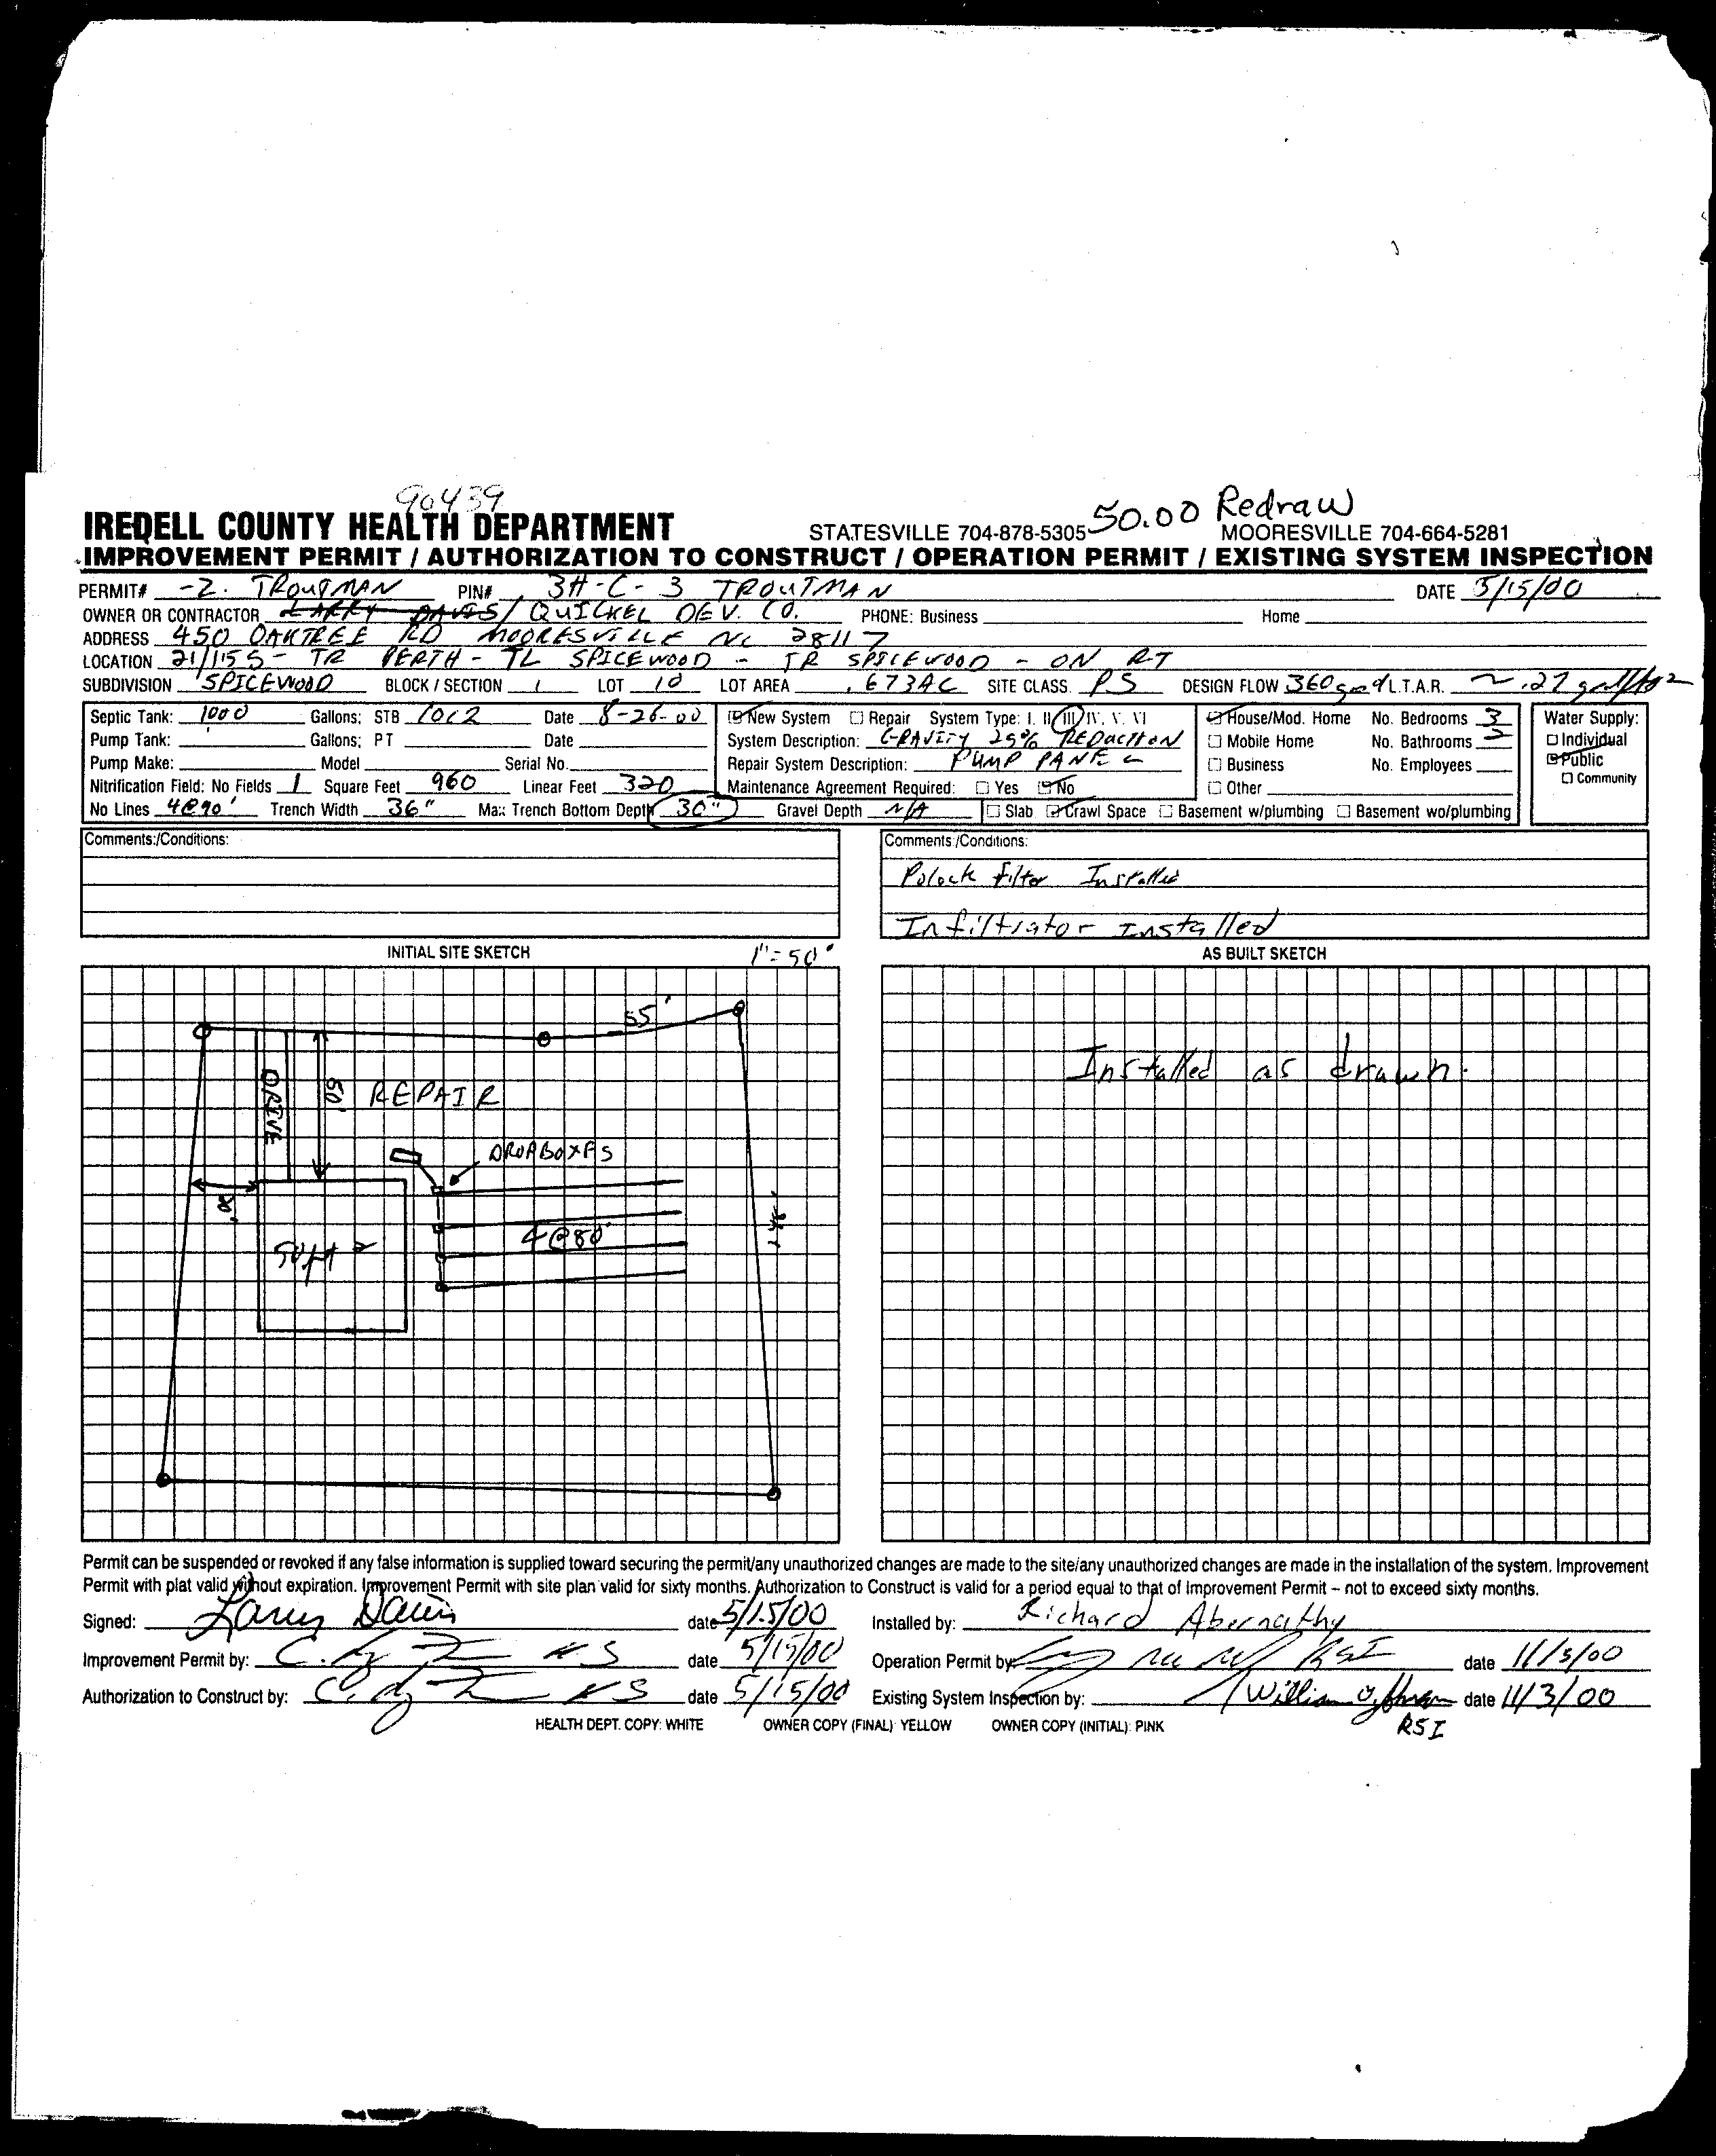 90439
50.00 Redraw
IREDELL COUNTY HEALTH DEPARTMENT STATESVILLE 704-878-5305 MOORESVILLE 704-664-5281
IMPROVEMENT PERMIT / AUTHORIZATION TO CONSTRUCT / OPERATION PERMIT / EXISTING SYSTEM INSPECTION
PERMIT# -2. TROUTMAN PIN# 3H-C-3 TROUTMAN DATE 5/15/00
OWNER OR CONTRACTOR LARRY DAVIS / QUICKEL DEV. CO. PHONE: Business Home
ADDRESS 450 OAKTREE RD MOORESVILLE NC 28117
LOCATION 21/115 S - TR PERTH - TL SPICEWOOD - TR SPICEWOOD - ON RT
SUBDIVISION SPICEWOOD BLOCK / SECTION 1 LOT 10 LOT AREA .673AC SITE CLASS. PS DESIGN FLOW 360 gpd L.T.A.R. ~ .27 gal/ft2
Septic Tank: 1000 Gallons; STB 1012 Date 8-26-00 New System Repair System Type: I. II III IV. V. VI House/Mod. Home No. Bedrooms 3 Water Supply:
Pump Tank: Gallons; PT Date System Description: GRAVITY 25% REDUCTION Mobile Home No. Bathrooms 2 Individual
Pump Make: Model Serial No. Repair System Description: PUMP PANEL Business No. Employees Public
Nitrification Field: No Fields 1 Square Feet 960 Linear Feet 320 Maintenance Agreement Required: Yes No Other Community
No Lines 4@90' Trench Width 36" Max Trench Bottom Depth 30" Gravel Depth N/A Slab Crawl Space Basement w/plumbing Basement wo/plumbing
Comments:/Conditions: Comments:/Conditions:
Polock filter Installed
Infiltrator Installed
INITIAL SITE SKETCH 1"=50' AS BUILT SKETCH
55'
DRIVE 50' REPAIR
Installed as drawn.
DROPBOXES
4@80'
Permit can be suspended or revoked if any false information is supplied toward securing the permit/any unauthorized changes are made to the site/any unauthorized changes are made in the installation of the system. Improvement
Permit with plat valid without expiration. Improvement Permit with site plan valid for sixty months. Authorization to Construct is valid for a period equal to that of Improvement Permit – not to exceed sixty months.
Signed: Larry Davis date 5/15/00 Installed by: Richard Abernathy
Improvement Permit by: date 5/15/00 Operation Permit by RSI date 11/3/00
Authorization to Construct by: date 5/15/00 Existing System Inspection by: William date 11/3/00
HEALTH DEPT. COPY: WHITE OWNER COPY (FINAL): YELLOW OWNER COPY (INITIAL): PINK RSI